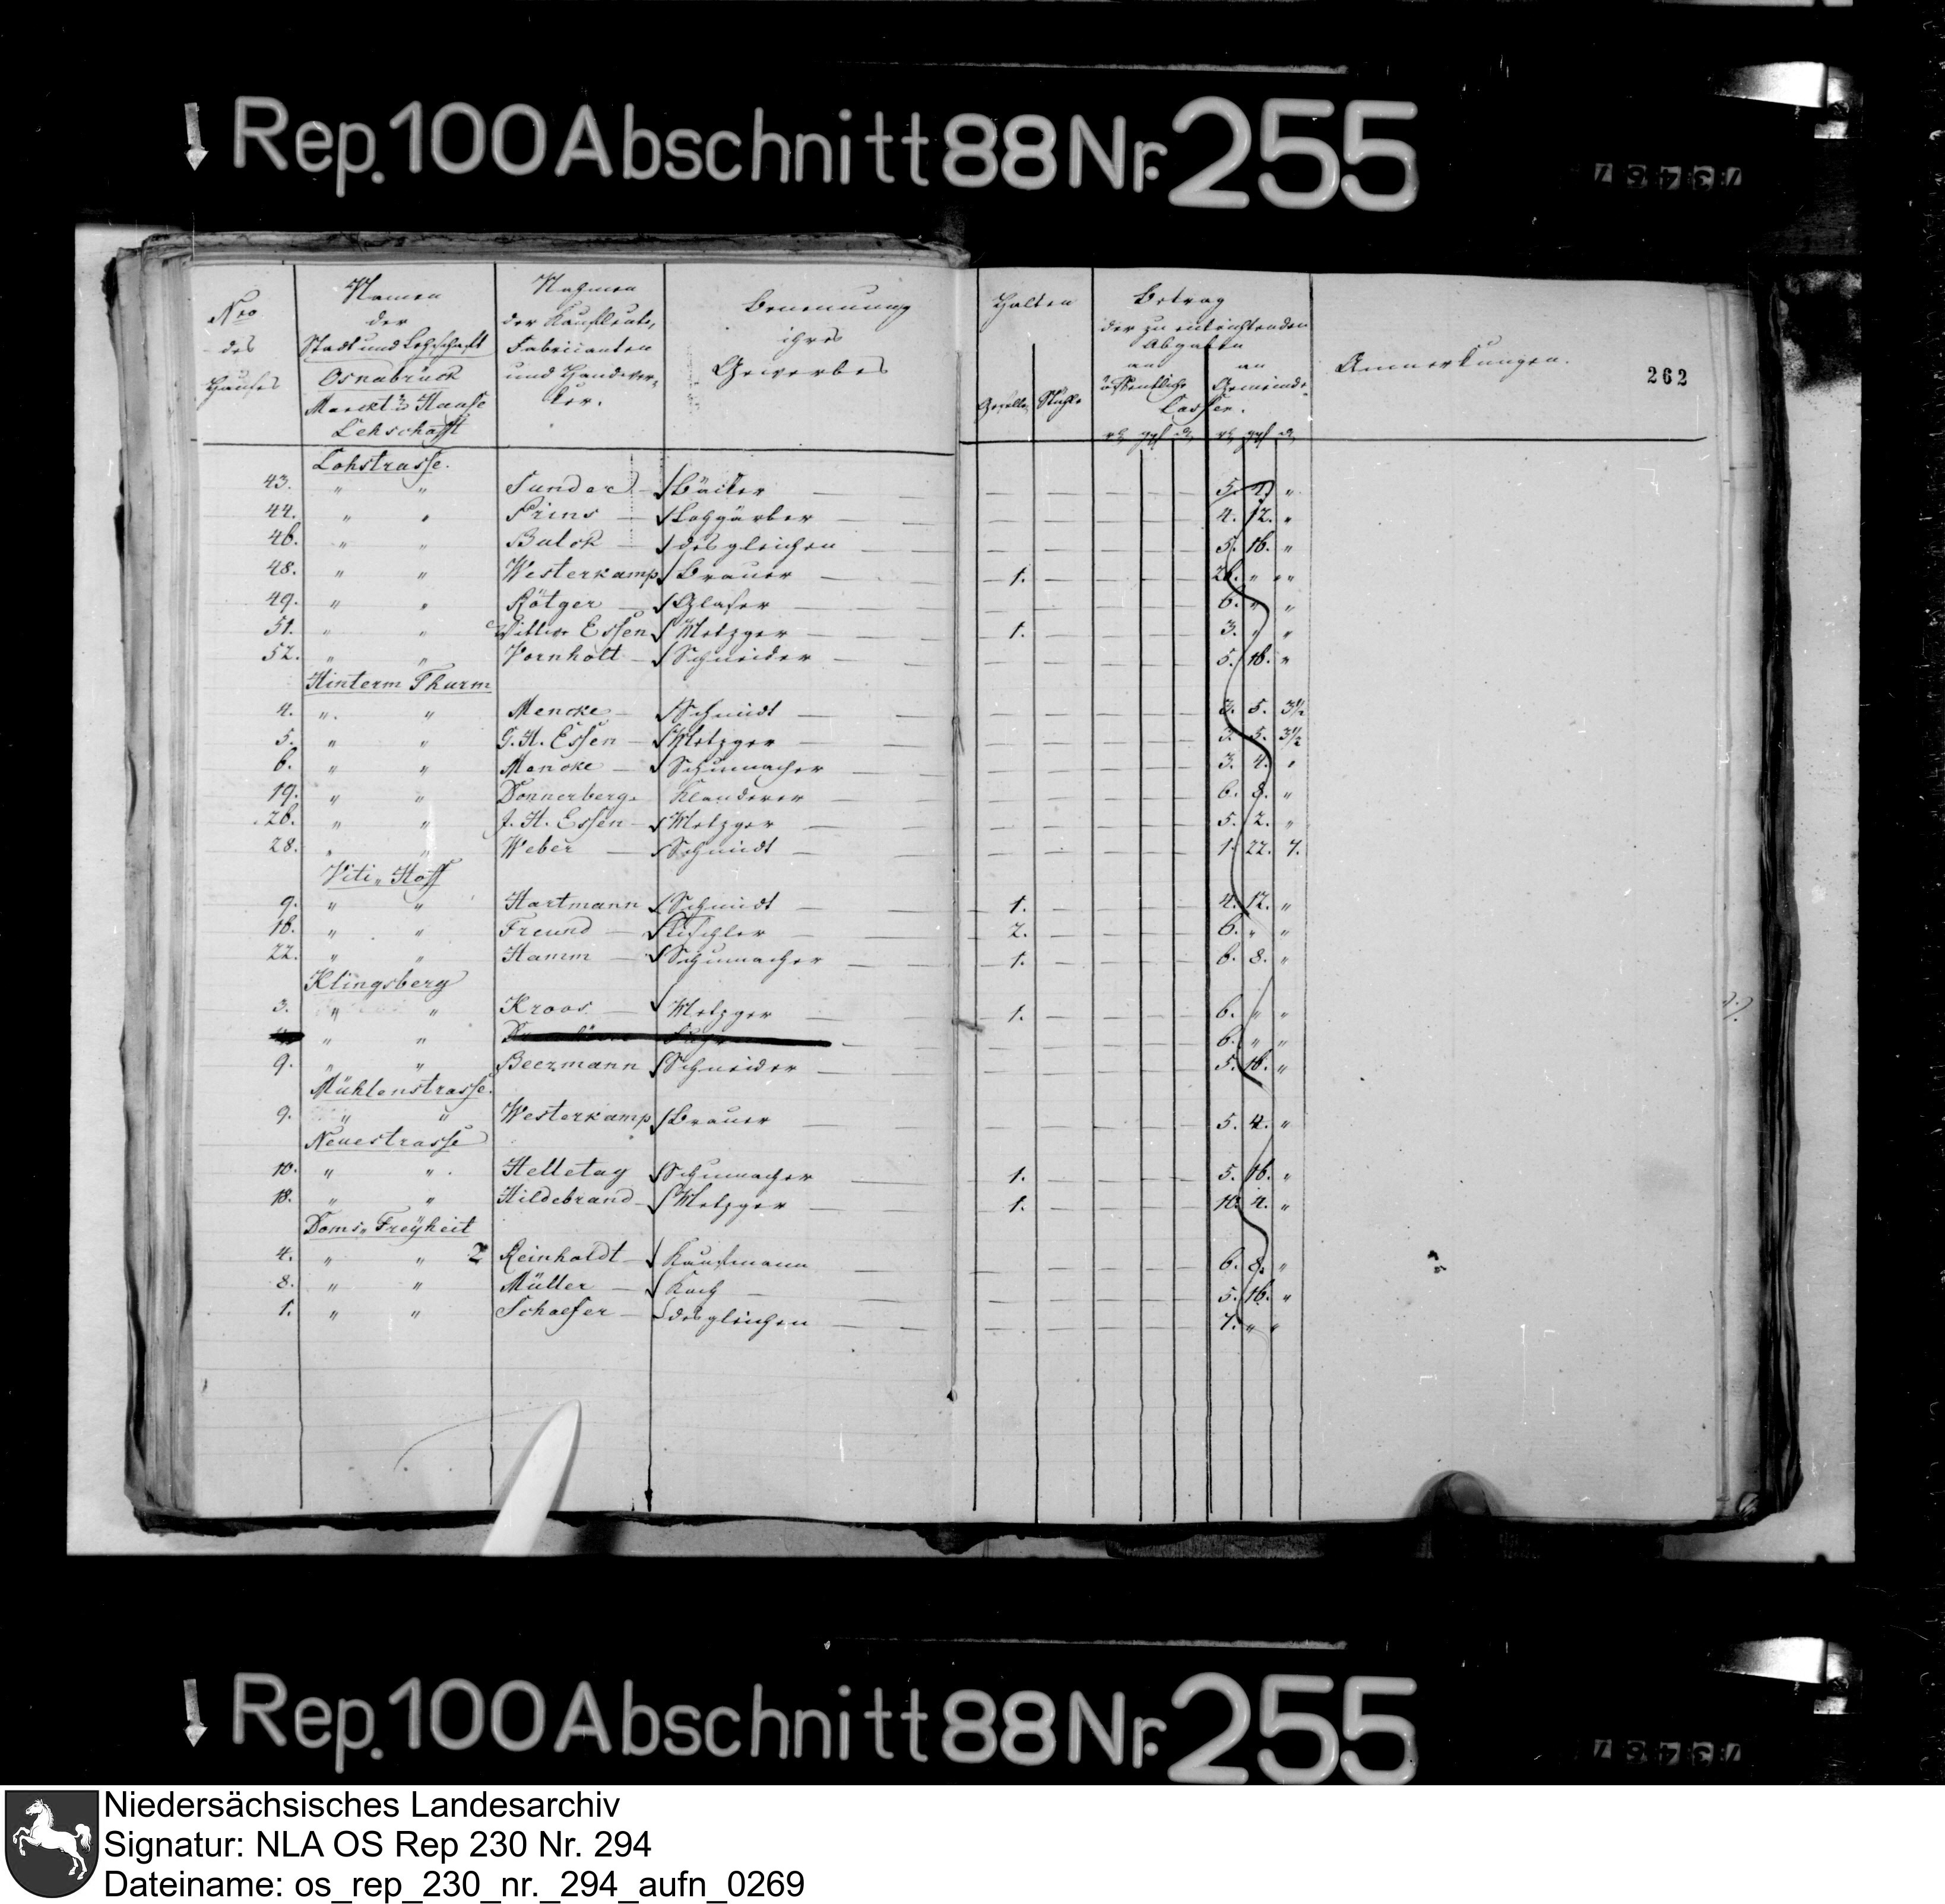 Rep. 100 Abschnitt 88 Nr. 255
262
Nro des Hauses
Namen der Stadt und Lehschaft Osnabrück Marckt u Haase Lehschafft
Nahmen der Kaufleute, Fabricanten und Handwerker.
Benennung ihres Gewerbes
Halten Geselle Stühle
Betrag der zu entrichtenden Abgaben an öffentliche an Gemeinde Cassen.
Anmerkungen.
Lohstrasse.
43. " " Sunder Bäcker — — — — — 5. "
44. " " Prins Lohgärber — — — — — 4. 12. "
46. " " Balck desgleichen — — — — — 5. 16. "
48. " " Westerkamp Brauer 1. — — — — 26. " "
49. " " Rötger Glaser — — — — — 6. " "
51. " " Wittwe Essen Metzger 1. — — — — 3. " "
52. " " Vornholt Schneider — — — — — 5. 16. "
Hinterm Thurm
4. " " Mencke Schmidt — — — — — 3. 5. 3½
5. " " G. H. Essen Metzger — — — — — 3. 5. 3½
6. " " Mencke Schumacher — — — — — 3. 4. "
19. " " Donnerberg. — — — — — 6. 8. "
26. " " J. H. Essen Metzger — — — — — 5. 2. "
28. " " Weber Schmidt — — — — — 1. 22. 7.
Viti " Hoff
9. " " Hartmann Schmidt 1. — — — — 4. 12. "
16. " " Freund Tischler 2. — — — — 6. " "
22. " " Hamm Schumacher 1. — — — — 6. 8. "
Klingsberg
3. " " Kroos. Metzger 1. — — — — 6. " "
" " — — — — — 6. " "
9. " " Beermann Schneider — — — — — 5. 16. "
Mühlenstrasse.
9. " " Westerkamp Brauer — — — — — 5. 4. "
Neuestrasse
10. " " Helletag Schumacher 1. — — — — 5. 16. "
18. " " Hildebrand Metzger 1. — — — — 10. 4. "
Doms " Freÿheit
4. " " 2 Reinholdt Kaufmann — — — — — 6. 8. "
8. " " Müller Koch — — — — — 5. 16. "
1. " " Schaefer desgleichen — — — — — 7. " "
Rep. 100 Abschnitt 88 Nr. 255
Niedersächsisches Landesarchiv
Signatur: NLA OS Rep 230 Nr. 294
Dateiname: os_rep_230_nr._294_aufn_0269